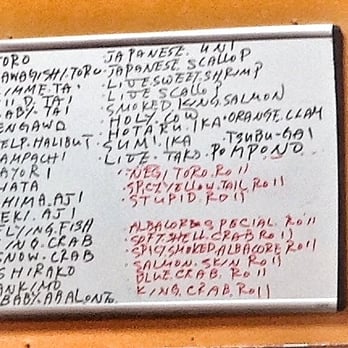 TORO
AWAGISHI.TORO
MME.TAI
II D TAI
BABY.TAI
ENGAWA
ELP.HALIBUT
AMPACHI
AYORI
HATA
HIMA.AJI
EKI.AJI
FLYING.FISH
ING.CRAB
SNOW.CRAB
SHIRAKO
ANKIMO
BABY.ABALONE
JAPANESE UNI
JAPANESE SCALLOP
LIVE SWEET SHRIMP
LIVE SCALLOP
SMOKED KING SALMON
HOLY COW
HOTARU IKA ORANGE CLAM
SUMI IKA TSUBU-GAI
LIVE TAKO POMPONO
NEGI TORO Roll
SPICY YELLOW TAIL Roll
STUPID Roll
ALBACORE SPECIAL Roll
SOFT SHELL CRAB Roll
SPICY SMOKED ALBACORE Roll
SALMON SKIN Roll
BLUE CRAB Roll
KING CRAB Roll